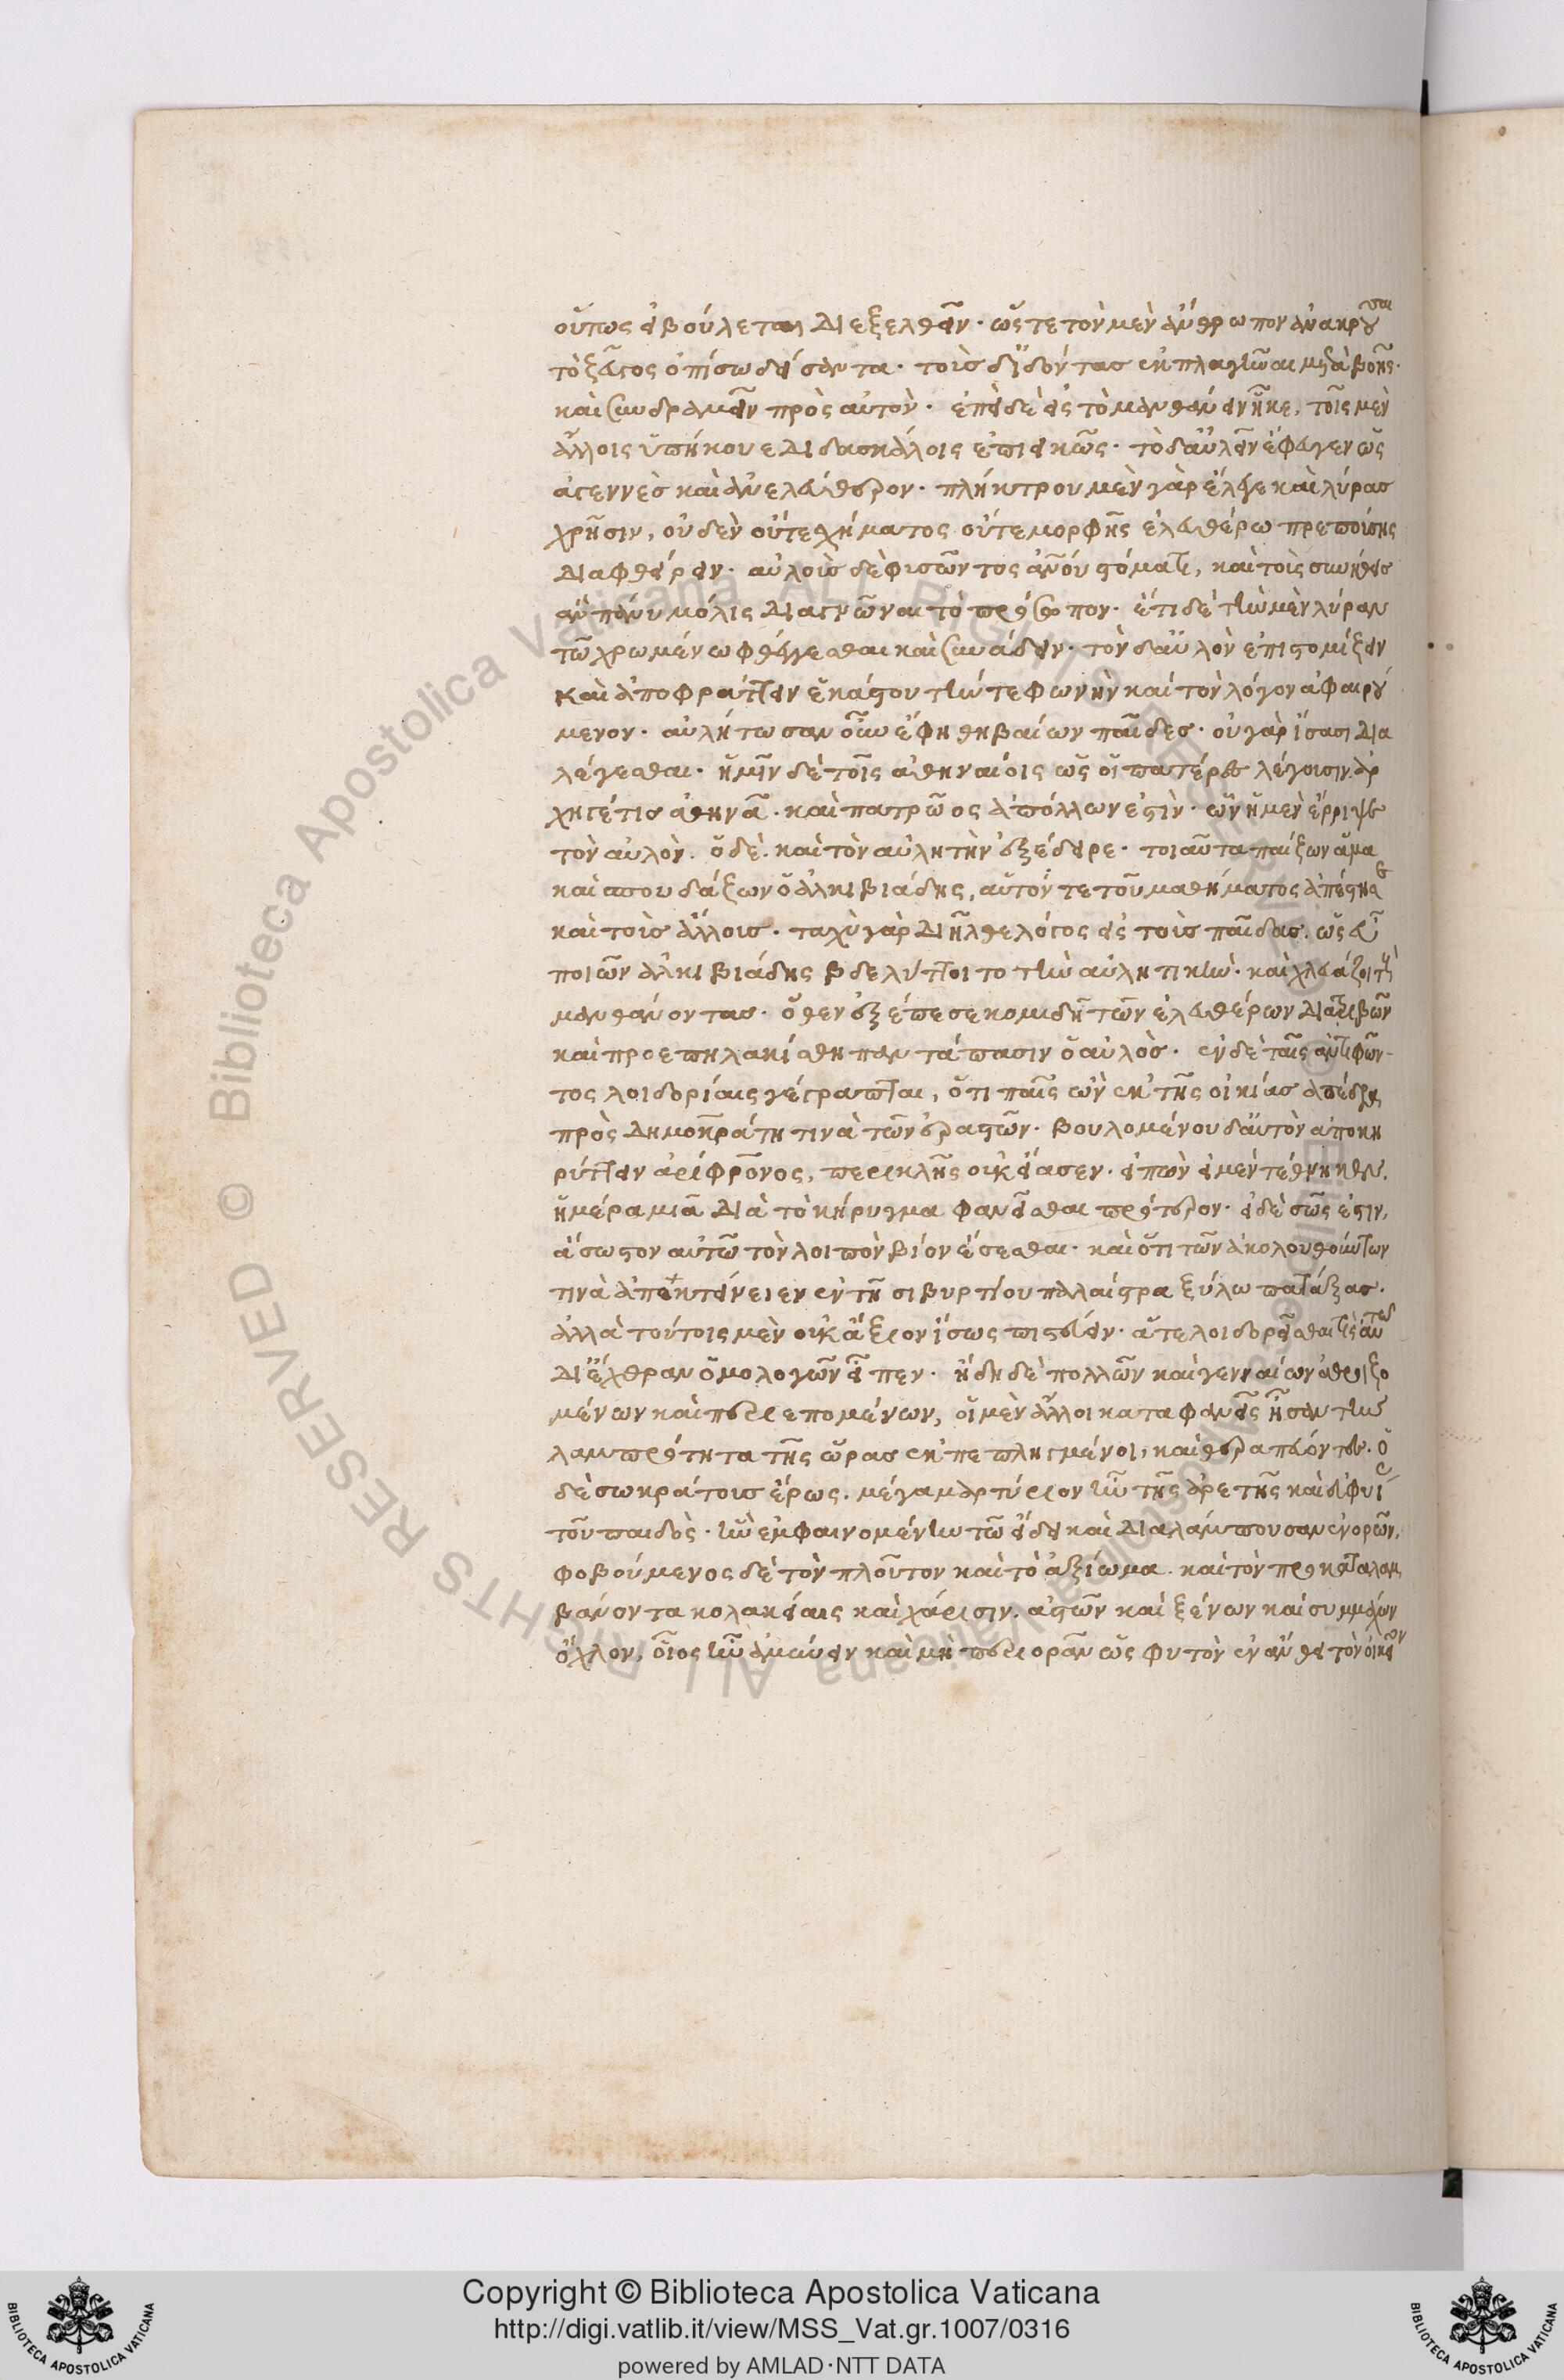 οὕτως εἰ βούλεται διεξελθεῖν· ὥστε τὸν μὲν ἄνθρωπον ἀνακροῦσαι
τὸ ζεῦγος ὀπίσω δείσαντα· τοὺς δ' ἰδόντας ἐκπλαγῆναι μετὰ βοῆς·
καὶ συνδραμεῖν πρὸς αὐτὸν· ἐπεὶ δὲ εἰς τὸ μανθάνειν ἧκε, τοῖς μὲν
ἄλλοις ὑπήκουε διδασκάλοις ἐπιεικῶς· τὸ δ' αὐλεῖν ἔφευγεν ὡς
ἀγεννὲς καὶ ἀνελεύθερον· πλήκτρου μὲν γὰρ ἔλεγε καὶ λύρας
χρῆσιν, οὐδὲν οὔτε σχήματος οὔτε μορφῆς ἐλευθέρω πρεπούσης
διαφθείρειν· αὐλοὺς δὲ φυσῶντος ἀνου στόματι, καὶ τοὺς συνήθεις
ἂν πάνυ μόλις διαγνῶναι τὸ πρόσωπον· ἔτι δὲ τὴν μὲν λύραν
τῶ χρωμένω φθέγγεσθαι καὶ συνάδειν· τὸν δ' αὐλὸν ἐπιστομίζειν
καὶ ἀποφράττειν ἑκάστου τήν τε φωνὴν καὶ τὸν λόγον ἀφαιρού
μενον· αὐλήτωσαν οὖν ἔφη θηβαίων παῖδες· οὐ γὰρ ἴσασι δια
λέγεσθαι· ἡμῖν δὲ τοῖς ἀθηναίοις ὡς οἱ πατέρες λέγουσιν ἀρ
χηγέτις ἀθηνᾶ· καὶ πατρῶος ἀπόλλων ἐστὶν· ὧν ἡ μὲν ἔρριψε
τὸν αὐλὸν. ὁ δὲ. καὶ τὸν αὐλητὴν ἐξέδειρε· τοιαῦτα παίζων ἅμα
καὶ σπουδάζων ὁ ἀλκιβιάδης, αὑτόν τε τοῦ μαθήματος ἀπέστησε
καὶ τοὺς ἄλλους· ταχὺ γὰρ διῆλθε λόγος εἰς τοὺς παῖδας. ὡς εὖ
ποιῶν ἀλκιβιάδης βδελύττοιτο τὴν αὐλητικὴν· καὶ χλευάζοι τοὺς
μανθάνοντας· ὅθεν ἐξέπεσε κομιδῆ τῶν ἐλευθέρων διατριβῶν
καὶ προεπηλακίσθη παντάπασιν ὁ αὐλὸς· ἐν δὲ ταῖς ἀντιφῶν
τος λοιδορίαις γέγραπται, ὅτι παῖς ὢν ἐκ τῆς οἰκίας ἀπέδρα
πρὸς δημοκράτη τινὰ τῶν ἐραστῶν· βουλομένου δ' αὐτὸν ἀποκη
ρύττειν ἀρίφρονος, περικλῆς οὐκ εἴασεν· εἰπὼν εἰ μὲν τέθνηκεν.
ἡμέρα μιᾶ διὰ τὸ κήρυγμα φανεῖσθαι πρότερον· εἰ δὲ σῶς ἐστιν,
ἄσωστον αὐτῶ τὸν λοιπὸν βίον ἔσεσθαι· καὶ ὅτι τῶν ἀκολουθούντων
τινὰ ἀπεκτείνειεν ἐν τῆ σιβυρτίου παλαίστρα ξύλω πατάξας·
ἀλλὰ τούτοις μὲν οὐκ ἄξιον ἴσως πιστεύειν· ἅ τε λοιδορεῖσθαι τις αὐτῶ
δι' ἔχθραν ὁμολογῶν εἶπεν· ἤδη δὲ πολλῶν καὶ γενναίων ἀθροιζο
μένων καὶ περιεπομένων, οἱ μὲν ἄλλοι καταφανεῖς ἦσαν τὴν
λαμπρότητα τῆς ὥρας ἐκπεπληγμένοι, καὶ θεραπεύοντες· ὁ
δὲ σωκράτους ἔρως. μέγα μαρτύριον ἦν τῆς ἀρετῆς καὶ εὐφυΐας
τοῦ παιδὸς· ἣν ἐμφαινομένην τῶ εἴδει καὶ διαλάμπουσαν ἐνορῶν,
φοβούμενος δὲ τὸν πλοῦτον καὶ τὸ ἀξίωμα. καὶ τὸν προκαταλαμ
βάνοντα κολακείαις καὶ χάρισιν. ἀστῶν καὶ ξένων καὶ συμμάχων
ὄχλον, οἷος ἦν ἀμύνειν καὶ μὴ περιορᾶν ὡς φυτὸν ἐν ἄνθει τὸν οἰκεῖον
Copyright © Biblioteca Apostolica Vaticana
http://digi.vatlib.it/view/MSS_Vat.gr.1007/0316
powered by AMLAD·NTT DATA